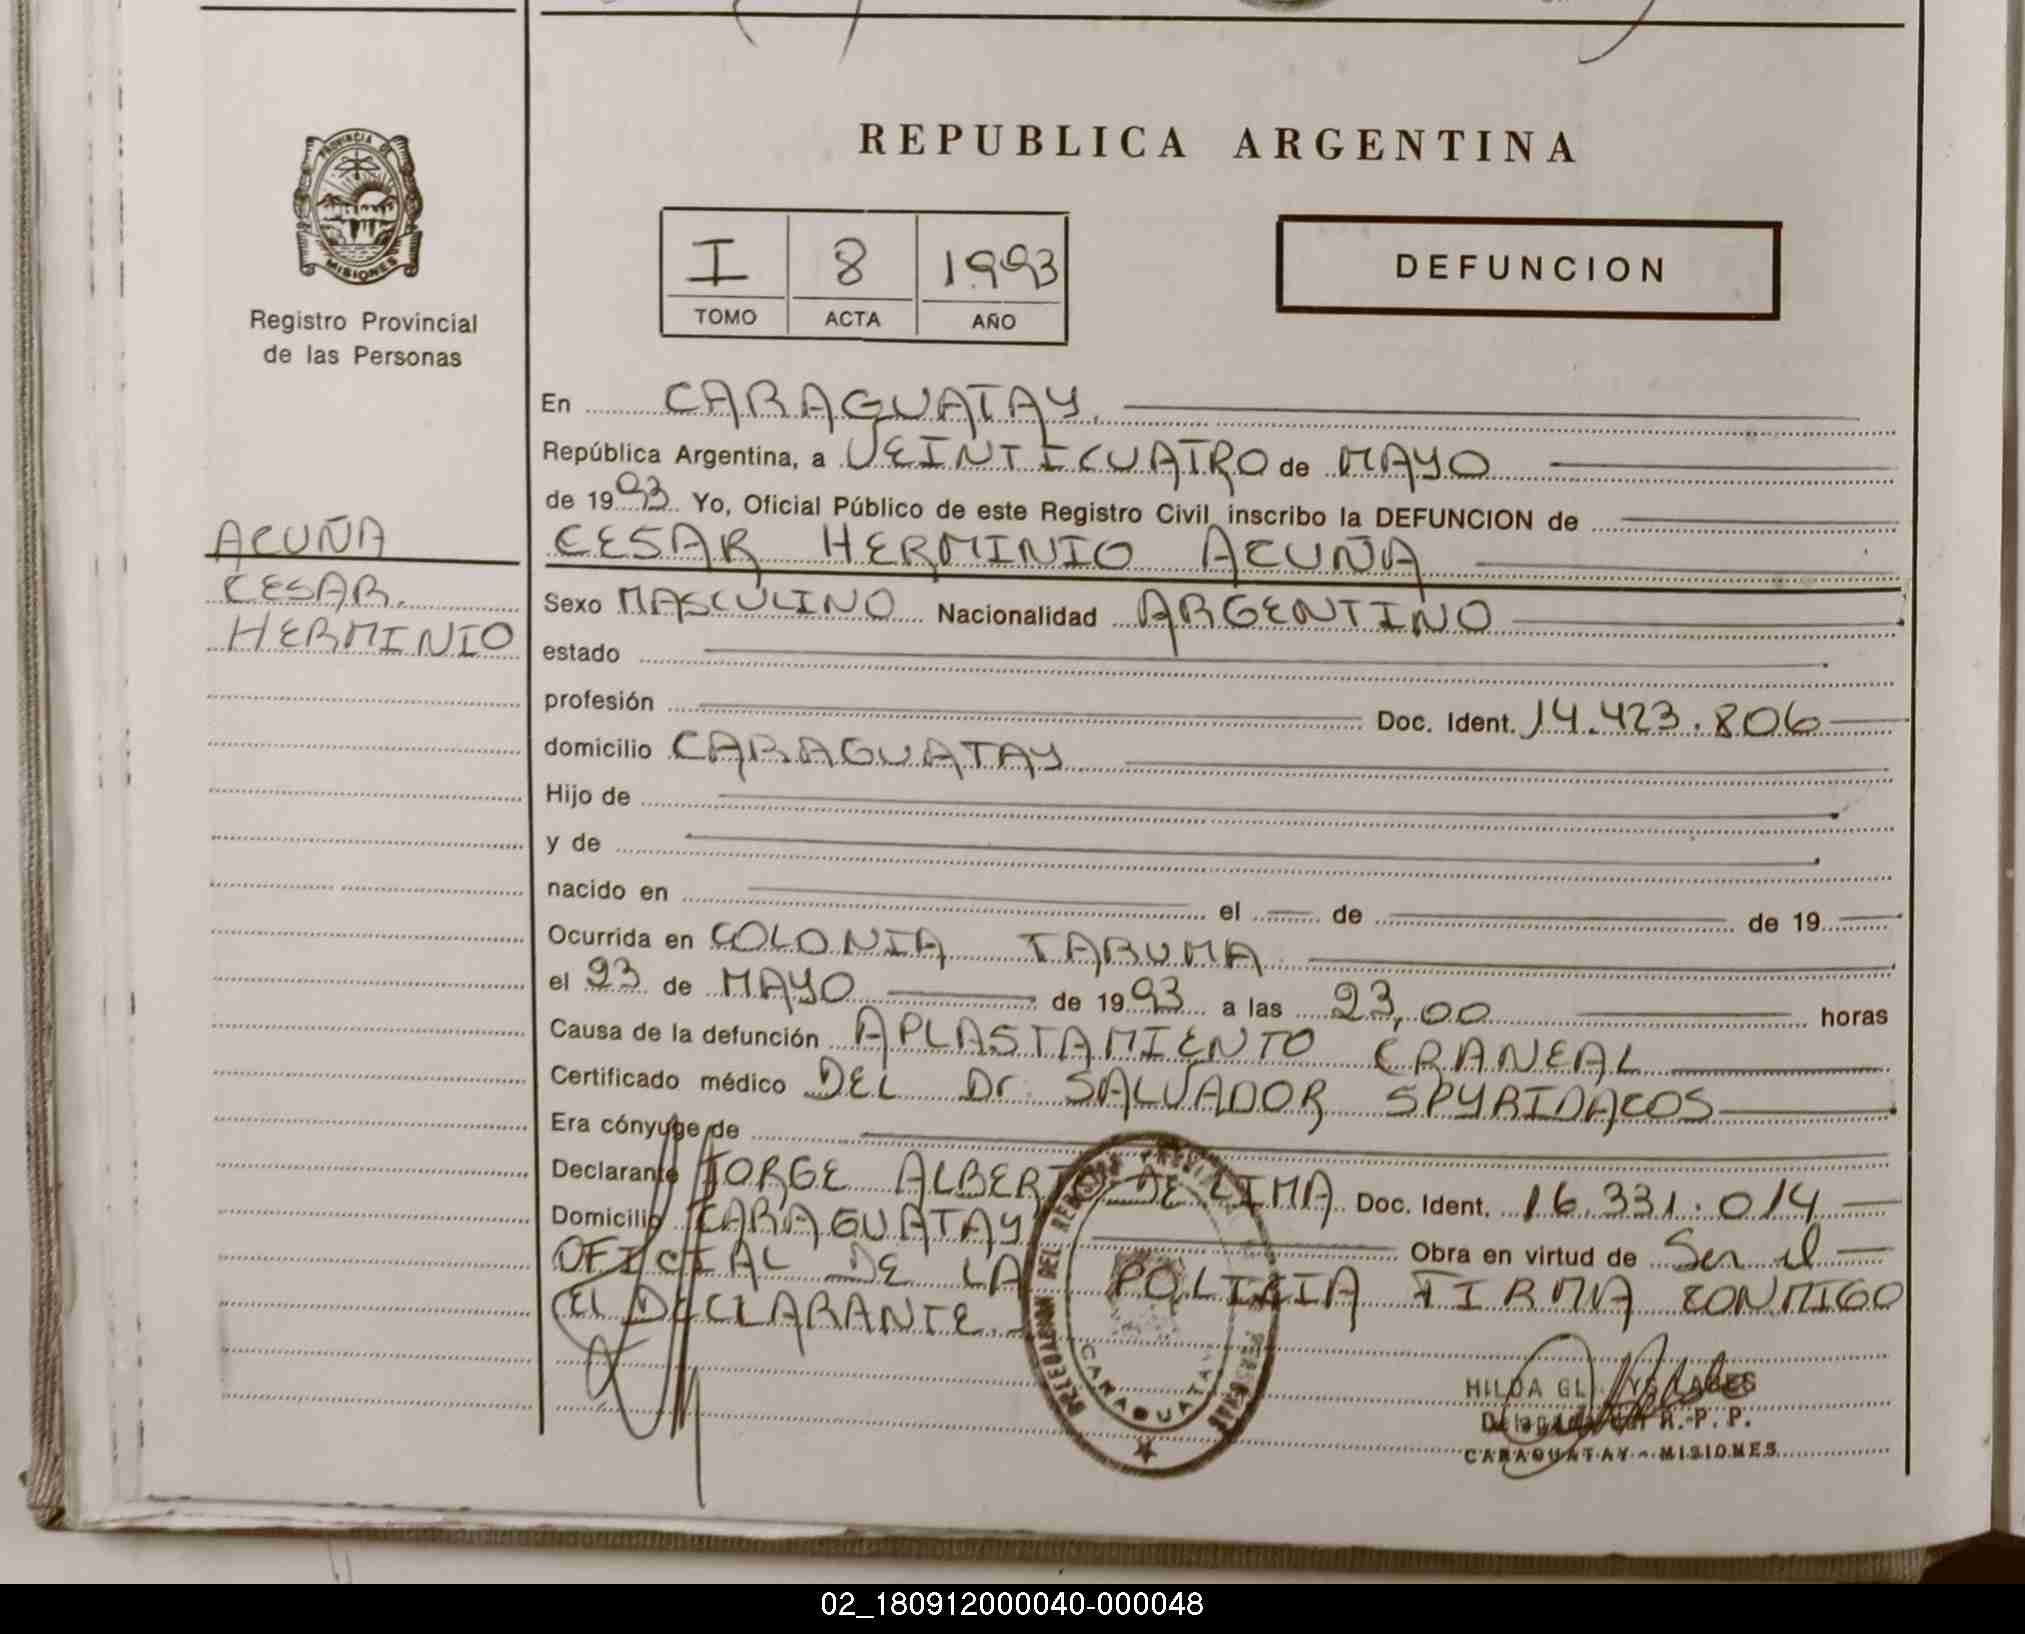 REPUBLICA ARGENTINA
PROVINCIA DE
MISIONES
Registro Provincial
de las Personas
I 8 1993
TOMO ACTA AÑO
DEFUNCION
En CARAGUATAY.
República Argentina, a VEINTICUATRO de MAYO
de 1993 Yo, Oficial Público de este Registro Civil inscribo la DEFUNCION de
CESAR HERMINIO ACUÑA
ACUÑA
CESAR.
HERMINIO
Sexo MASCULINO Nacionalidad ARGENTINO
estado
profesión Doc. Ident. 14.423.806
domicilio CARAGUATAY
Hijo de
y de
nacido en el de de 19
Ocurrida en COLONIA TARUMA
el 23 de MAYO de 1993 a las 23,00 horas
Causa de la defunción APLASTAMIENTO CRANEAL
Certificado médico DEL Dr. SALVADOR SPYRIDACOS
Era cónyuge de
Declarante JORGE ALBERTO DE LIMA Doc. Ident. 16.331.014
Domicilio CARAGUATAY Obra en virtud de Ser el
OFICIAL DE LA POLICIA FIRMA CONMIGO
EL DECLARANTE.
DELEGACION DEL REGISTRO PROVINCIAL
CARAGUATAY
HILDA
R.P.P.
CARAGUATAY - MISIONES
02_180912000040-000048